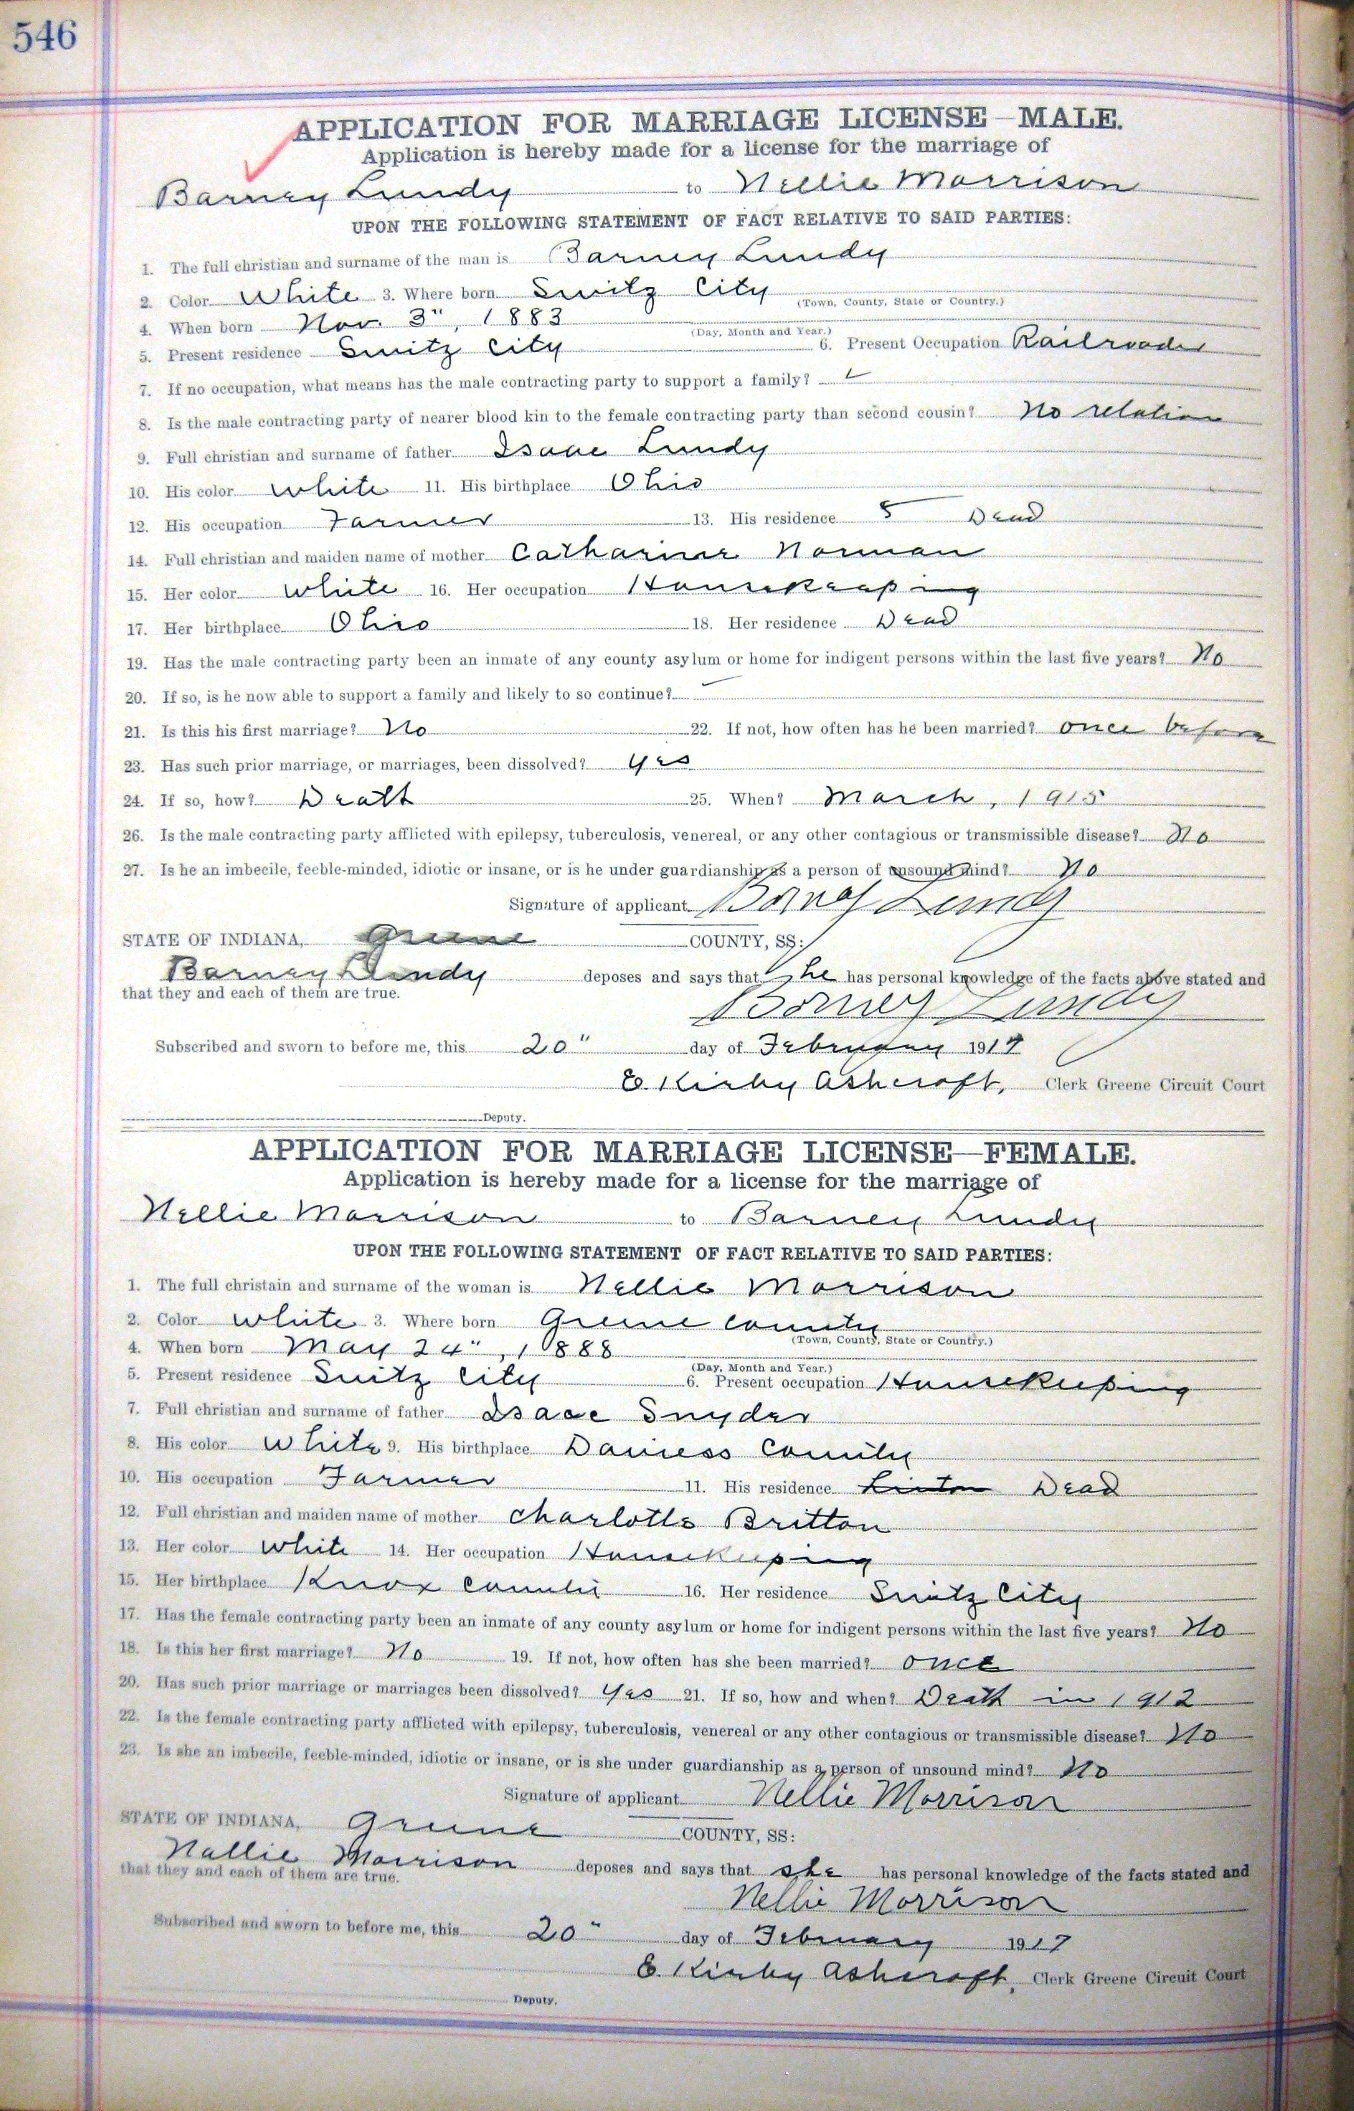 546
APPLICATION FOR MARRIAGE LICENSE—MALE.
Application is hereby made for a license for the marriage of
Barney Lundy to Nellie Morrison
UPON THE FOLLOWING STATEMENT OF FACT RELATIVE TO SAID PARTIES:
1. The full christian and surname of the man is Barney Lundy
2. Color White 3. Where born Switz City (Town, County, State or Country.)
4. When born Nov. 3", 1883 (Day, Month and Year.)
5. Present residence Switz City 6. Present Occupation Railroader
7. If no occupation, what means has the male contracting party to support a family?
8. Is the male contracting party of nearer blood kin to the female contracting party than second cousin? No relation
9. Full christian and surname of father Isaac Lundy
10. His color White 11. His birthplace Ohio
12. His occupation Farmer 13. His residence Dead
14. Full christian and maiden name of mother Catharine Norman
15. Her color White 16. Her occupation Housekeeping
17. Her birthplace Ohio 18. Her residence Dead
19. Has the male contracting party been an inmate of any county asylum or home for indigent persons within the last five years? No
20. If so, is he now able to support a family and likely to so continue?
21. Is this his first marriage? No 22. If not, how often has he been married? once before
23. Has such prior marriage, or marriages, been dissolved? yes
24. If so, how? Death 25. When? March, 1915
26. Is the male contracting party afflicted with epilepsy, tuberculosis, venereal, or any other contagious or transmissible disease? No
27. Is he an imbecile, feeble-minded, idiotic or insane, or is he under guardianship as a person of unsound mind? No
Signature of applicant Barney Lundy
STATE OF INDIANA, Greene COUNTY, SS:
Barney Lundy deposes and says that he has personal knowledge of the facts above stated and
that they and each of them are true.
Barney Lundy
Subscribed and sworn to before me, this 20" day of February 1917
E. Kirby Ashcroft, Clerk Greene Circuit Court
Deputy.
APPLICATION FOR MARRIAGE LICENSE—FEMALE.
Application is hereby made for a license for the marriage of
Nellie Morrison to Barney Lundy
UPON THE FOLLOWING STATEMENT OF FACT RELATIVE TO SAID PARTIES:
1. The full christain and surname of the woman is Nellie Morrison
2. Color White 3. Where born Greene County (Town, County, State or Country.)
4. When born May 24", 1888 (Day, Month and Year.)
5. Present residence Switz City 6. Present occupation Housekeeping
7. Full christian and surname of father Isaac Snyder
8. His color White 9. His birthplace Daviess County
10. His occupation Farmer 11. His residence Linton Dead
12. Full christian and maiden name of mother Charlotte Britton
13. Her color White 14. Her occupation Housekeeping
15. Her birthplace Knox County 16. Her residence Switz City
17. Has the female contracting party been an inmate of any county asylum or home for indigent persons within the last five years? No
18. Is this her first marriage? No 19. If not, how often has she been married? once
20. Has such prior marriage or marriages been dissolved? Yes 21. If so, how and when? Death in 1912
22. Is the female contracting party afflicted with epilepsy, tuberculosis, venereal or any other contagious or transmissible disease? No
23. Is she an imbecile, feeble-minded, idiotic or insane, or is she under guardianship as a person of unsound mind? No
Signature of applicant Nellie Morrison
STATE OF INDIANA, Greene COUNTY, SS:
Nellie Morrison deposes and says that she has personal knowledge of the facts stated and
that they and each of them are true.
Nellie Morrison
Subscribed and sworn to before me, this 20" day of February 1917
E. Kirby Ashcroft, Clerk Greene Circuit Court
Deputy.